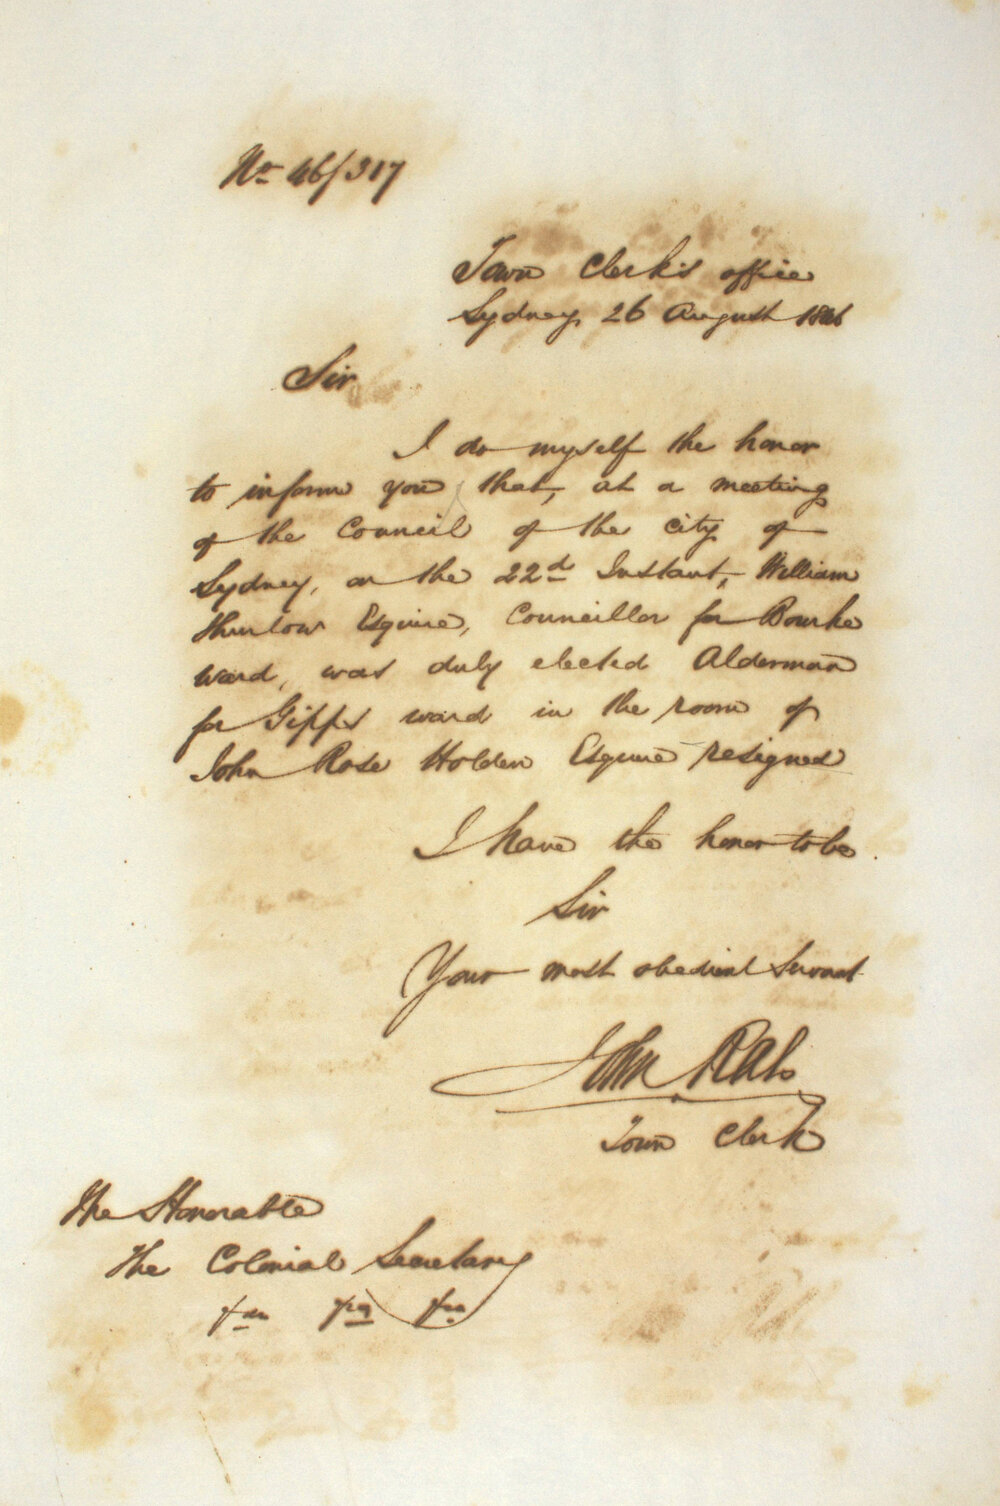 No 46/317
Town Clerk's office
Sydney, 26 August 1846
Sir
I do myself the honor
to inform you that, at a meeting
of the Council of the city of
Sydney, on the 22d Instant, William
Thurlow Esquire, Councillor for Bourke
ward, was duly elected Alderman
for Gipps ward in the room of
John Rose Holden Esquire resigned
I have the honor to be
Sir
Your most obedient Servant
John
Town Clerk
The Honorable
The Colonial Secretary